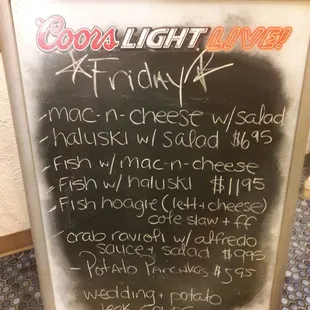 Coors LIGHT LIVE!
Friday
- mac-n-cheese w/ salad
- haluski w/ salad $6.95
- Fish w/ mac-n-cheese
- Fish w/ haluski $11.95
- Fish hoagie (lett + cheese)
cole slaw + ff
- crab ravioli w/ alfredo
sauce + salad $9.95
- Potato Pancakes $5.95
wedding + potato
leek soups